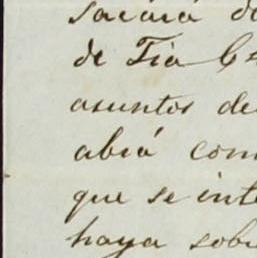 sacará de
de Tia C
asuntos de
abrá com
que se inte
haya sob